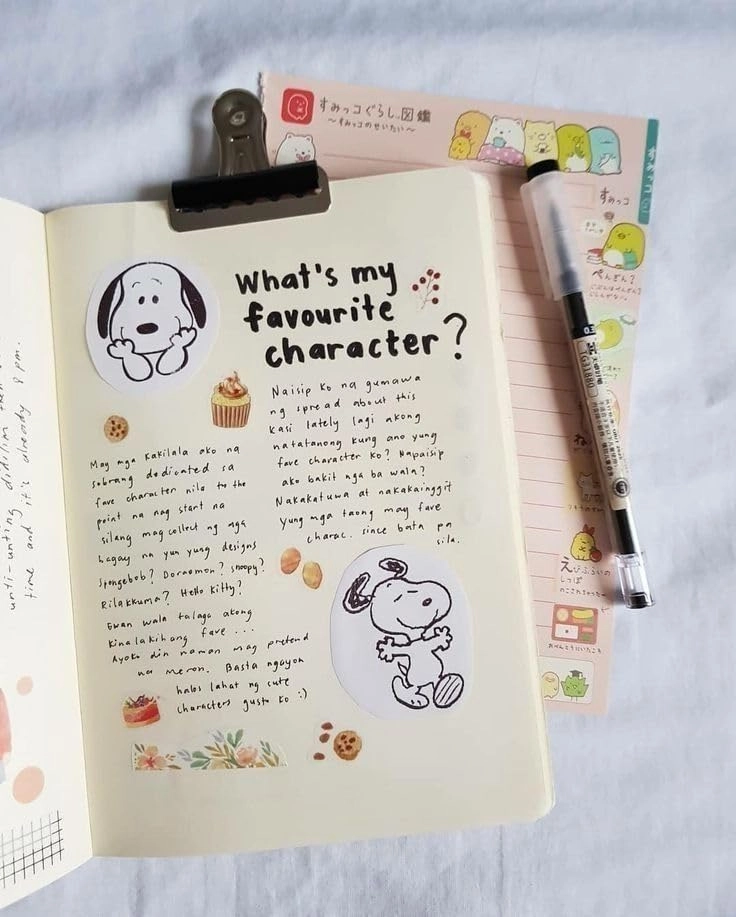 What's my
favourite
character?
Naisip ko na gumawa
ng spread about this
kasi lately lagi akong
natatanong kung ano yung
fave character ko? Napaisip
ako bakit nga ba wala?
Nakakatuwa at nakakainggit
yung mga taong may fave
charac. since bata pa
sila.
May mga kakilala ako na
sobrang dedicated sa
fave character nila to the
point na nag start na
silang mag collect ng mga
bagay na yun yung designs
Spongebob? Doraemon? Snoopy?
Rilakkuma? Hello Kitty?
Ewan wala talaga akong
kinalakihang fave ...
Ayoko din naman mag pretend
na meron. Basta ngayon
halos lahat ng cute
characters gusto ko :)
unti-unting didilim
time and it's already 8 pm.
すみっコぐらし図鑑
~すみっコのせいたい~
すみっコ
ぺんぎん?
えびふらいの
しっぽ